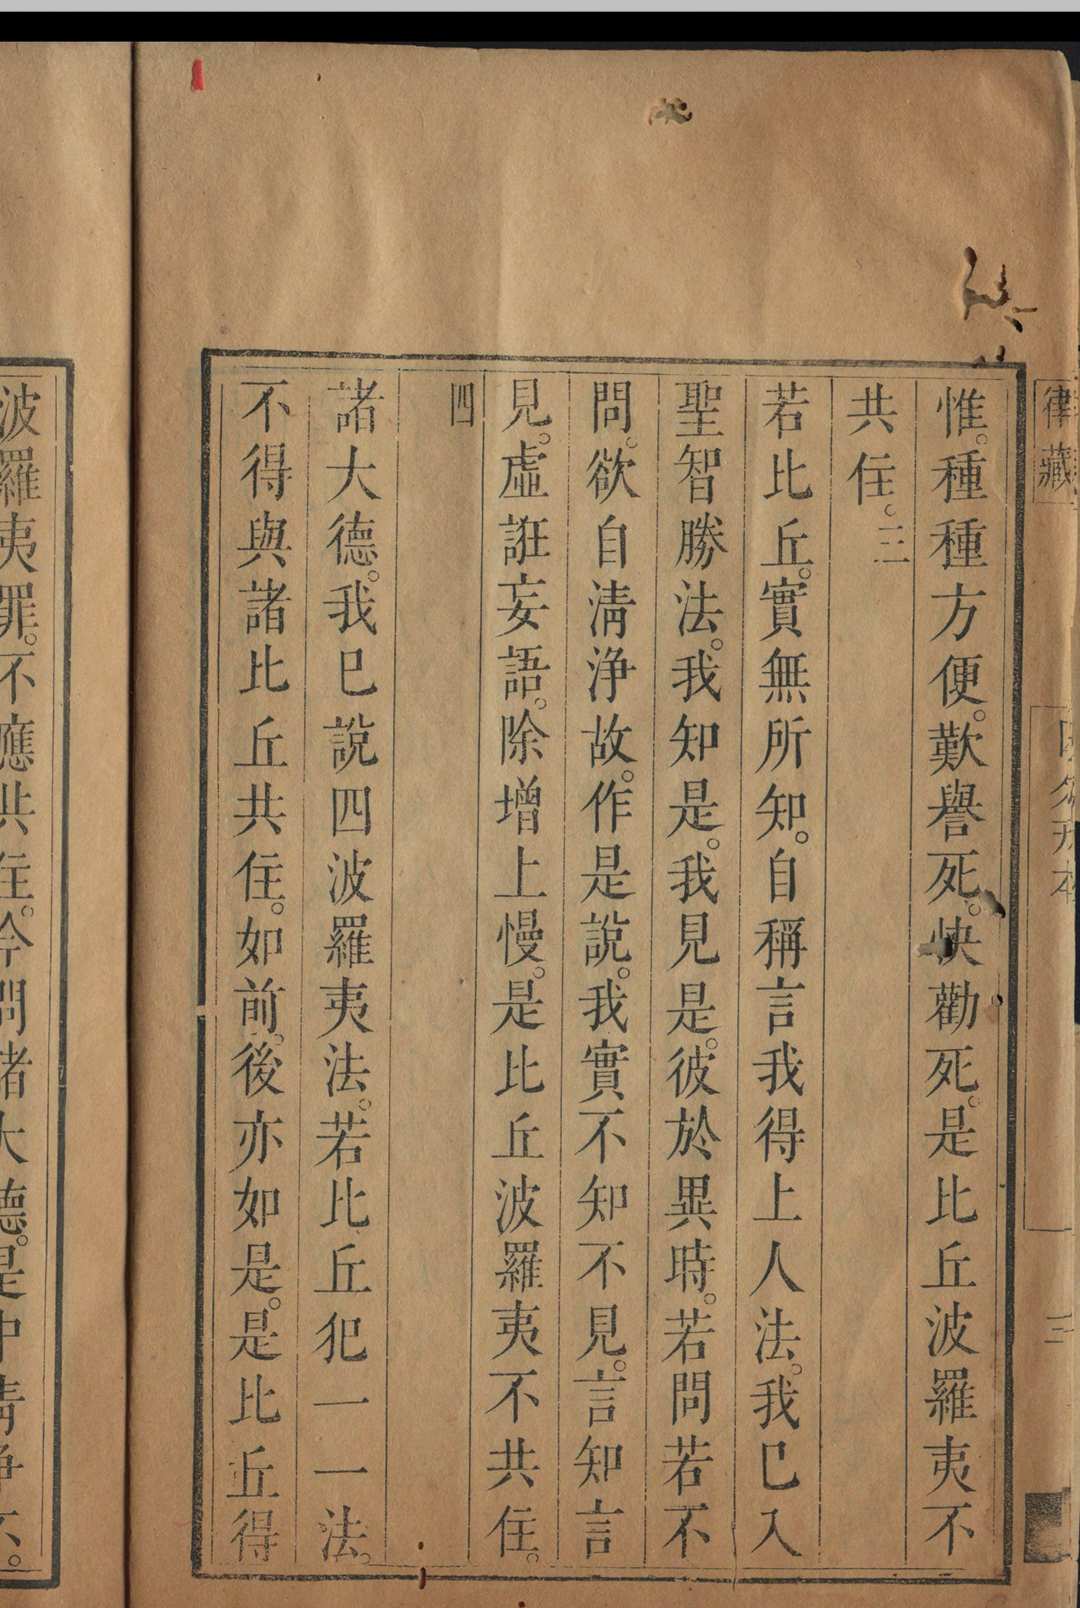 律藏
三
惟。種種方便。歎譽死。快勸死。是比丘波羅夷不
共住。三
若比丘。實無所知。自稱言我得上人法。我已入
聖智勝法。我知是。我見是。彼於異時。若問若不
問。欲自淸淨故。作是說。我實不知不見。言知言
見。虛誑妄語。除增上慢。是比丘波羅夷不共住。
四
諸大德。我已說四波羅夷法。若比丘犯一一法。
不得與諸比丘共住。如前。後亦如是。是比丘得
波羅夷罪。不應共住。今問諸大德。是中淸淨不。